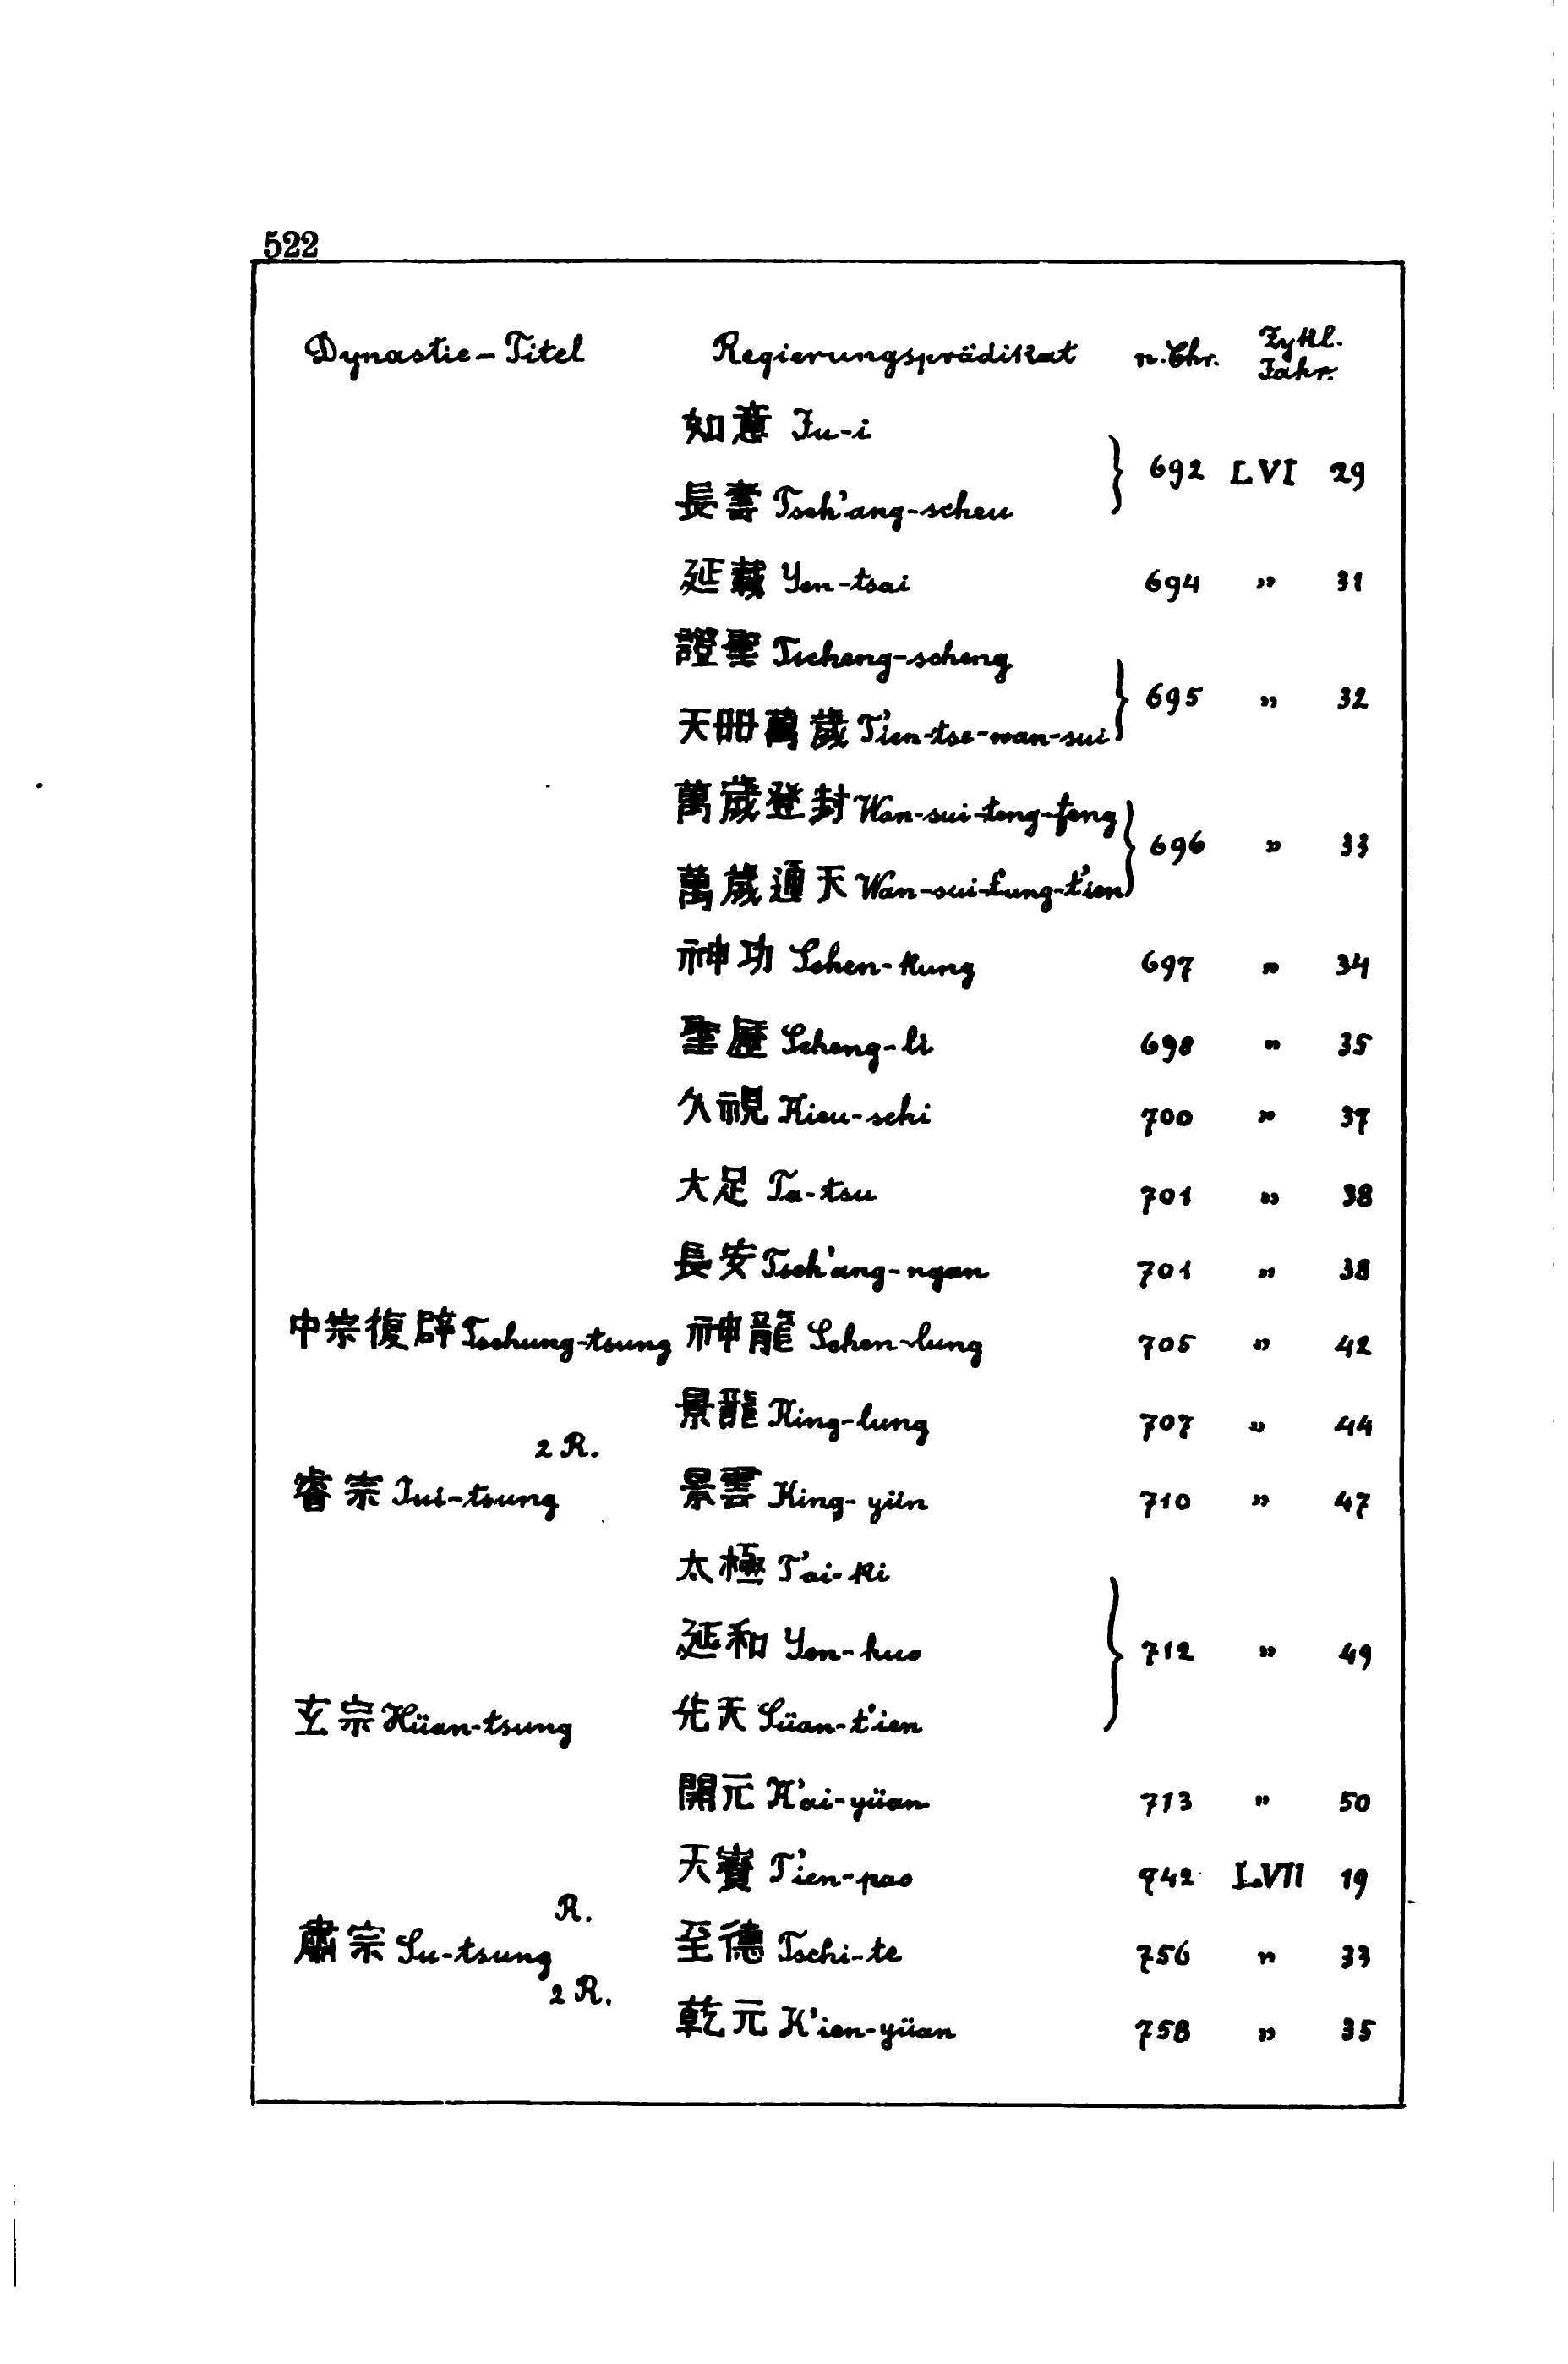 522
Dynastie-Titel Regierungsprädikat n. Chr. Zykl. Jahr.
如意 Ju-i
692 LVI 29
長壽 Tsch'ang-scheu
延載 Yen-tsai 694 " 31
證聖 Tscheng-scheng
695 " 32
天冊萬歲 T'ien-tse-wan-sui
萬歲登封 Wan-sui-teng-feng
696 " 33
萬歲通天 Wan-sui-t'ung-t'ien
神功 Schen-kung 697 " 34
聖歷 Scheng-li 698 " 35
久視 Kieu-schi 700 " 37
大足 Ta-tsu 701 " 38
長安 Tsch'ang-ngan 701 " 38
中宗復辟 Tschung-tsung 神龍 Schen-lung 705 " 42
景龍 King-lung 707 " 44
2 R.
睿宗 Jui-tsung 景雲 King-yün 710 " 47
太極 T'ai-ki
延和 Yen-huo 712 " 49
玄宗 Hüan-tsung 先天 Süan-t'ien
開元 K'ai-yüan 713 " 50
天寶 T'ien-pao 742 LVII 19
R.
肅宗 Su-tsung 至德 Tschi-te 756 " 33
2 R.
乾元 K'ien-yüan 758 " 35